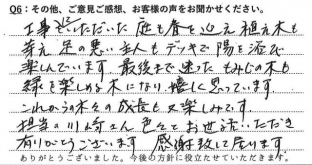 Q6：その他、ご意見ご感想、お客様の声をお聞かせください。
工事していただいた庭も春を迎え植え木も
芽え足の悪い主人もデッキで陽を浴び
楽しんでいます 最後まで迷ったもみじの木も
緑を楽しめる木になり嬉しく思っています
これからの木々の成長も又楽しみです
担当の川崎さん色々とお世話いただき
有りがとうございます 感謝致して居ります
ありがとうございました。今後の方針に役立たせていただきます